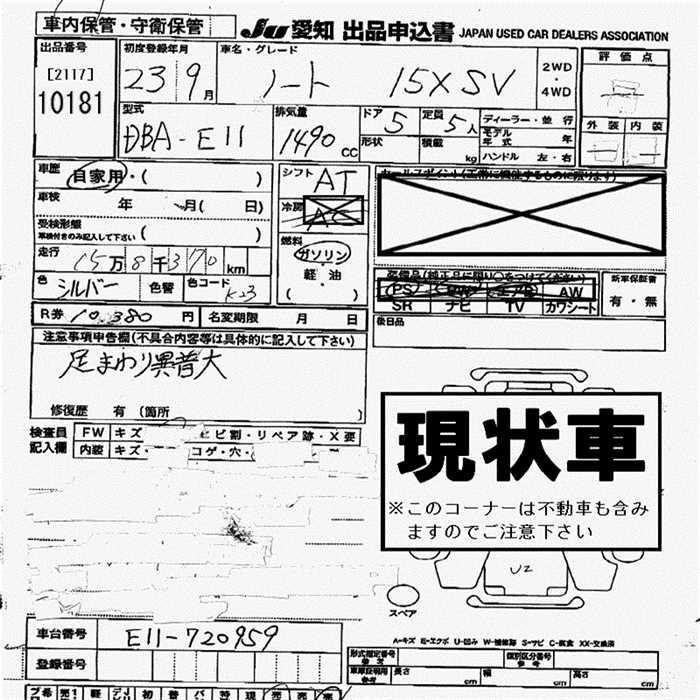 車内保管・守衛保管
JU 愛知 出品申込書 JAPAN USED CAR DEALERS ASSOCIATION
出品番号 [2117] 10181
初度登録年月 23 9月
車名・グレード ノート 15X SV
2WD・4WD
評価点
外装 内装
型式 DBA-E11
排気量 1490 CC
ドア 5
形状
定員 5人
積載 kg
ディーラー・並行
モデル年式 年
ハンドル 左・右
車歴 自家用・( )
車検 年 月( 日)
受検形態
車検付きのみ記入して下さい ( )
走行 15万8千370km
色 シルバー 色替 色コード K23
シフト AT
冷房 AC
燃料 ガソリン・軽・油 ( )
セールスポイント(正常に機能するものに限ります)
装備品(純正品に限り○をつけてください)
PS PW エアB AW
SR ナビ TV カワシート
新車保証書 有・無
後日品
R券 10,380 円 名変期限 月 日
注意事項申告欄(不具合内容等は具体的に記入して下さい)
足まわり異音大
修復歴 有 (箇所 )
検査員記入欄 FW キズ ヒビ割・リペア跡・X要
内装 キズ コゲ・穴・
現状車
※このコーナーは不動車も含み
ますのでご注意下さい
U2
スペア
A-キズ E-エクボ U-凹み W-補修跡 S-サビ C-腐食 XX-交換済
車台番号 E11-720959
登録番号
形式指定番号 参考
類別区分番号 参考
車庫証明用 参考 長さ cm 幅 cm 高さ cm